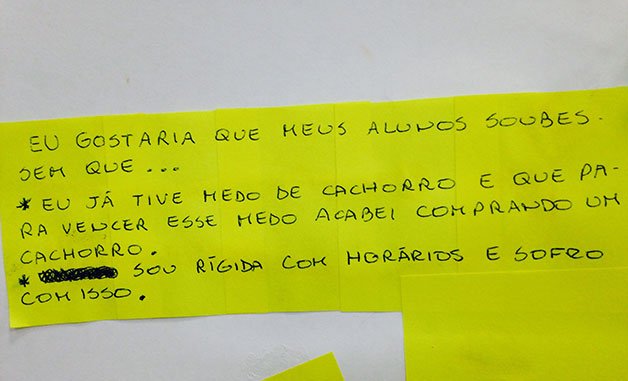 EU GOSTARIA QUE MEUS ALUNOS SOUBES-
SEM QUE...
* EU JÁ TIVE MEDO DE CACHORRO E QUE PA-
RA VENCER ESSE MEDO ACABEI COMPRANDO UM
CACHORRO.
* SOU RÍGIDA COM HORÁRIOS E SOFRO
COM ISSO.